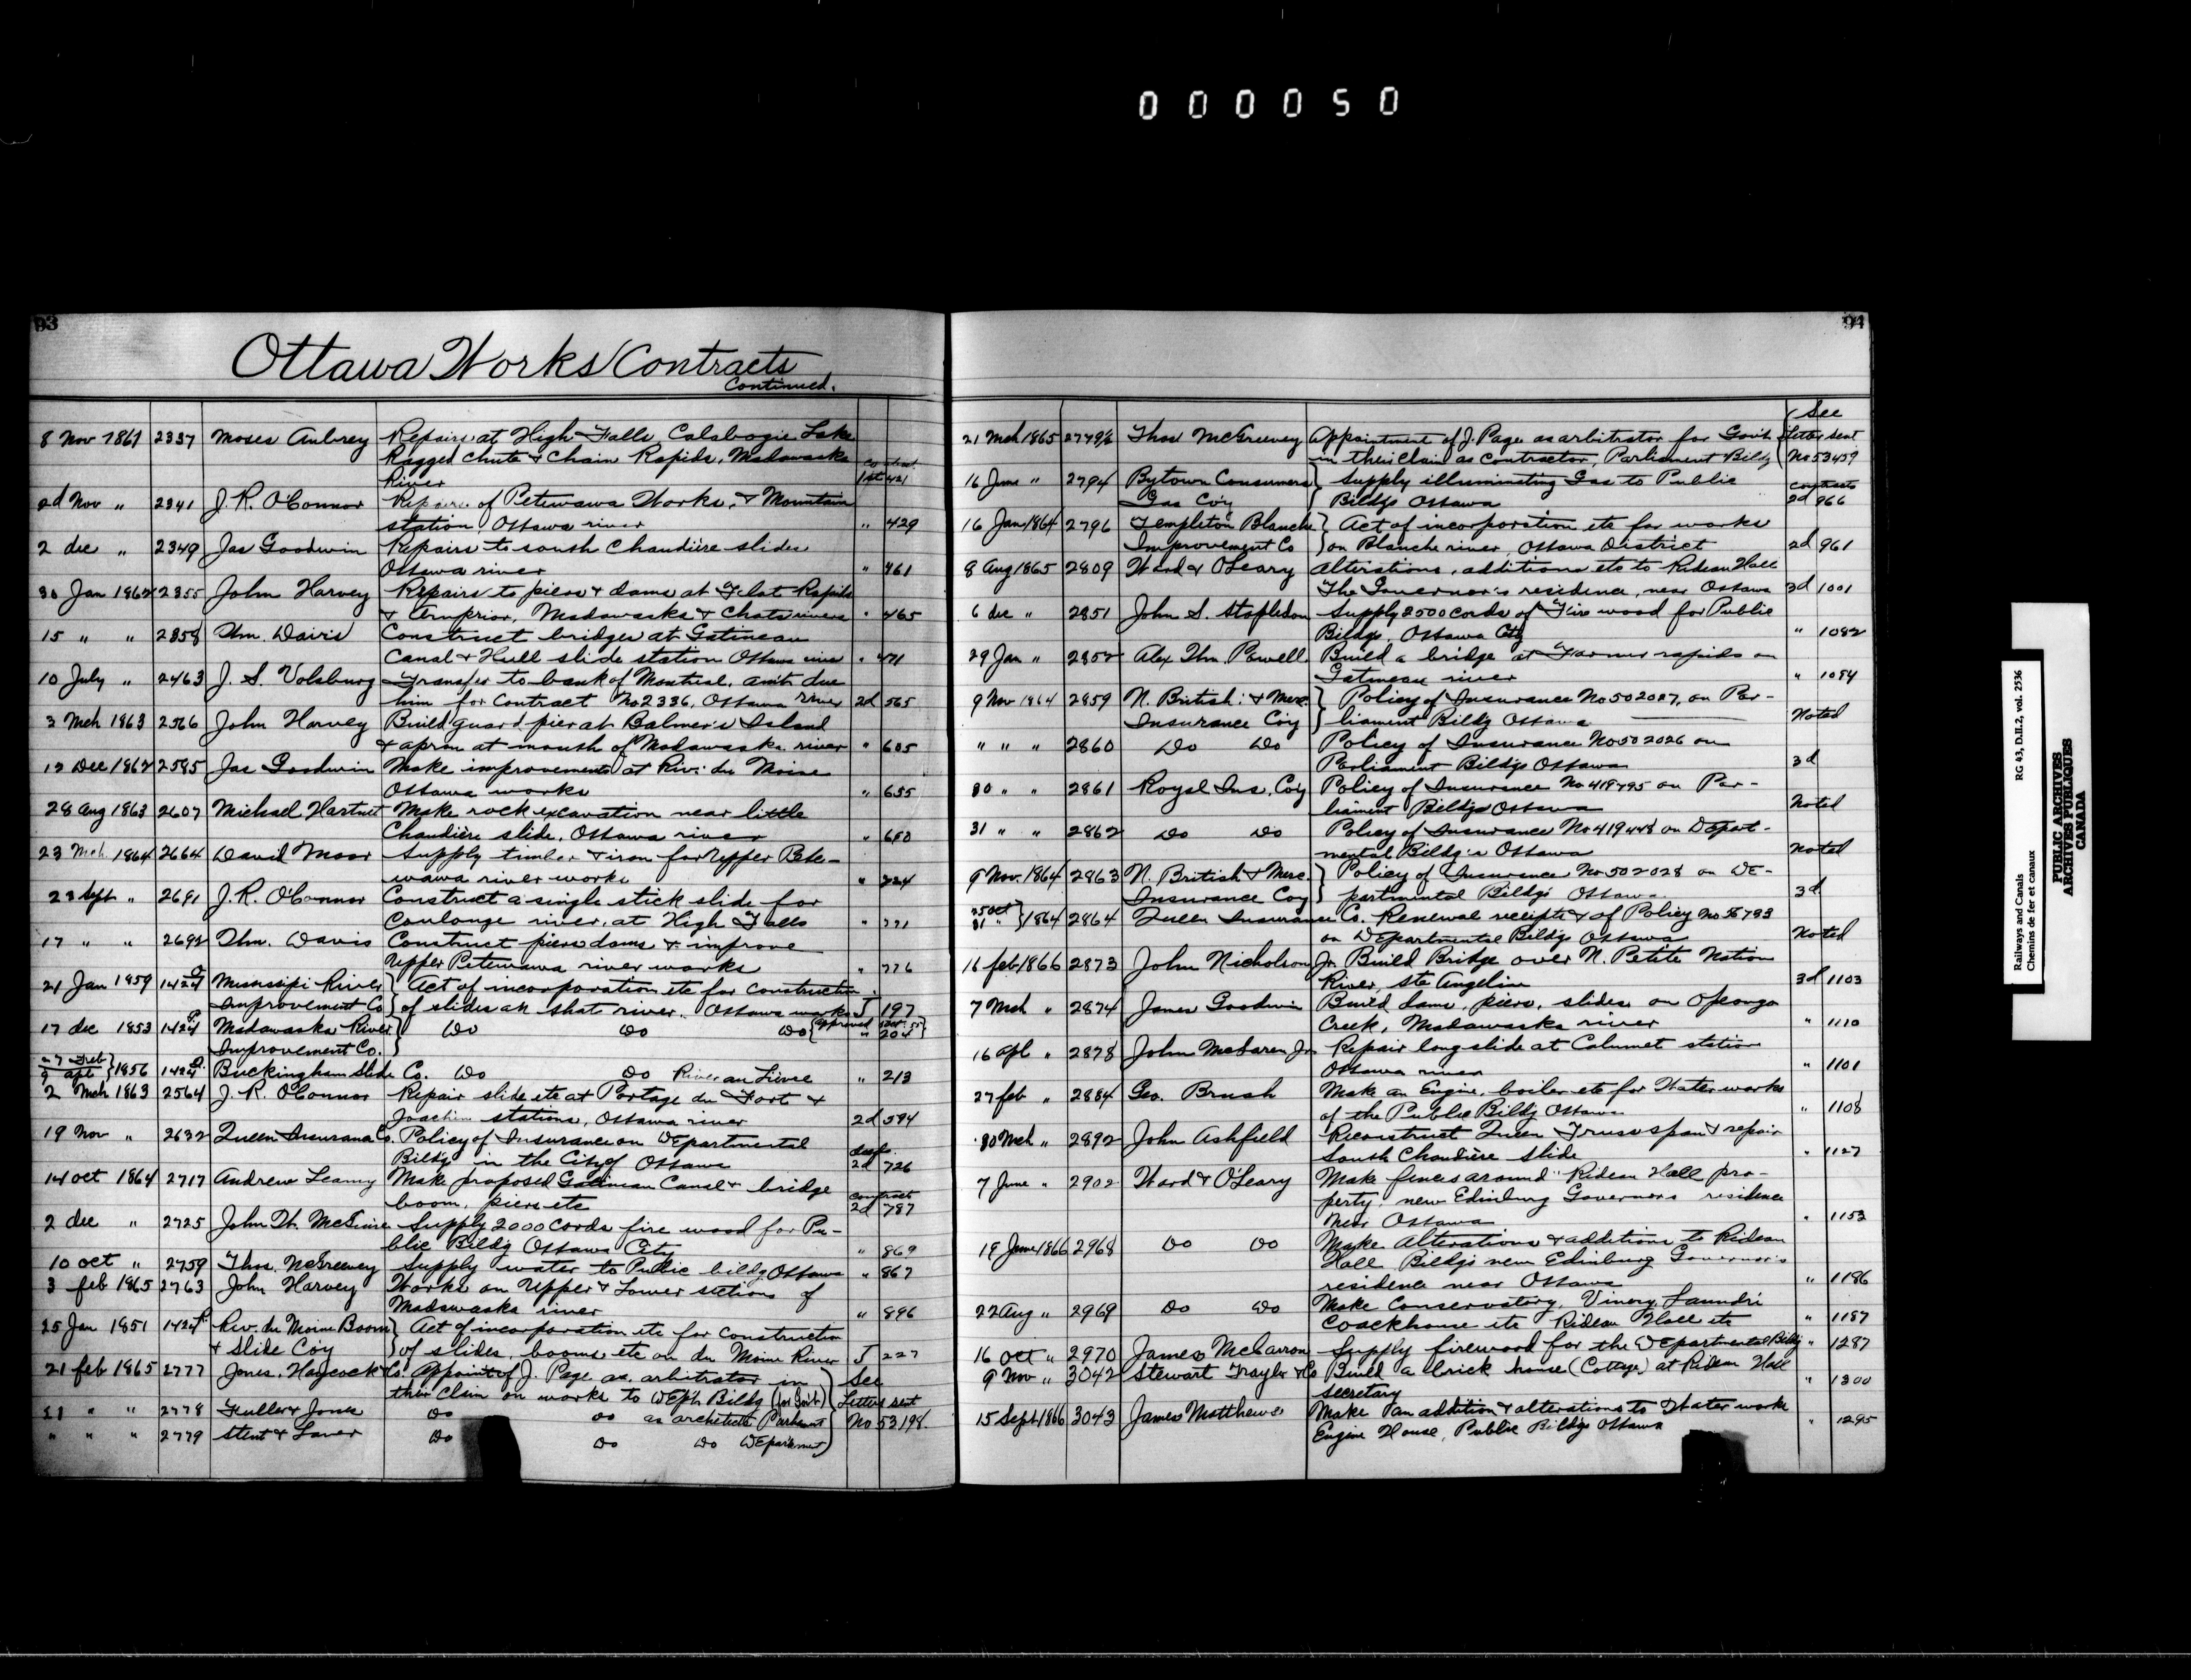 000050
93
Ottawa Works Contracts
Continued.
8 Nov 1861 2337 Moses Aubrey Repairs at High Falls, Calabogie Lake
Ragged Chute & Chain Rapids, Madawaska
River 1st 421
2d Nov " 2341 J. R. O'Connor Repairs of Petewawa Works, & Mountain
station, Ottawa river " 429
2 dec " 2349 Jas Goodwin Repairs to south Chaudière slides
Ottawa river " 461
30 Jan 1862 2355 John Harvey Repairs to piers & dams at Flat Rapids
& Arnprior, Madawaska & Chats rivers " 465
15 " " 2358 Thm. Davis Construct bridges at Gatineau
Canal & Hull slide station Ottawa river " 471
10 July " 2463 J. S. Volsburg Transfer to bank of Montreal, amt due
him for Contract No 2336, Ottawa river 2d 565
3 Mch 1863 2566 John Harvey Build guard pier at Balmer's Island
& apron at mouth of Madawaska river " 605
12 Dec 1862 2585 Jas Goodwin Make improvements at Riv: du Moine
Ottawa works " 655
28 Aug 1863 2607 Michael Hartnet Make rock excavation near little
Chaudière slide, Ottawa river " 680
23 Mch 1864 2664 David Moor Supply timber & iron for Upper Pete-
wawa river works " 724
23 Sept " 2691 J. R. O'Connor Construct a single stick slide for
Coulonge river, at High Falls " 771
17 " " 2692 Thm. Davis Construct piers dams & improve
Upper Petewawa river works " 776
21 Jan 1859 1424 Mississipi River } Act of incorporation etc for construction
Improvement Co } of slides on that river. Ottawa works J 197
17 dec 1853 1424 Madawaska River } Do Do Do { approved
Improvement Co. } " 204
27 Feb
9 apl } 1856 1424 Buckingham Slide Co. Do Do River au Lievre " 213
2 Mch 1863 2564 J. R. O'Connor Repair slide etc at Portage du Fort &
Joachim stations, Ottawa river 2d 594
19 Nov " 2632 Queen Insurance Co. Policy of Insurance on Departmental
Bildg in the City of Ottawa 2d 726
14 oct 1864 2717 Andrew Leamy Make proposed Gatineau Canal & bridge
boom, piers etc contract 2d 787
2 dec " 2725 John Th. McGuire Supply 2000 Cords fire wood for Pu-
blic Bildg Ottawa City " 869
10 oct " 2759 Thos. McGreevey Supply water to Public bildg Ottawa " 867
3 feb 1865 2763 John Harvey Works on Upper & Lower stations of
Madawaska river " 896
25 Jan 1851 1424 Riv. du Moine Boom } Act of incorporation etc for construction
& Slide Coy } of slides, booms etc on du Moine River J 227
21 feb 1865 2777 Jones, Haycock & Co. Appoint of J. Page as arbitrator in
their claim on works to Dept Bildg (for Govt) See
Letter sent
21 " " 2778 Fuller & Jones Do Do as architects Parliament No 53198.
" " " 2779 Stent & Laver Do Do Do Department
94
21 Mch 1865 2779½ Thos McGreevey Appointment of J. Page as arbitrator for Govt See Letter sent
in their claim as contractor, Parliament Bildg No 53459
16 June " 2794 Bytown Consumers } Supply illuminating Gas to Public
Gas Coy } Bildgs Ottawa contracts 2d 966
16 Jan 1864 2796 Templeton Blanche } Act of incorporation etc for works
Improvement Co } on Blanche river, Ottawa District 2d 961
8 Aug 1865 2809 Ward & O'Leary Alterations, additions etc to Rideau Hall
The Governor's residence, near Ottawa 3d 1001
6 dec " 2851 John S. Stapledon Supply 2500 cords of Fire wood for Public
Bildgs, Ottawa City " 1082
29 Jan " 2852 Alex Thm. Powell Build a bridge at Farmer rapids on
Gatineau river " 1084
9 Nov 1864 2859 N. British: & Merc. } Policy of Insurance No 502027, on Par-
Insurance Coy } liament Bildg Ottawa Noted
" " " 2860 Do Do Policy of Insurance No 502026 on
Parliament Bildgs Ottawa 3d
30 " " 2861 Royal Ins. Coy Policy of Insurance No 419795 on Par-
liament Bildgs Ottawa Noted
31 " " 2862 Do Do Policy of Insurance No 419448 on Depart-
mental Bildg's Ottawa Noted
9 Nov. 1864 2863 N. British & Merc. } Policy of Insurance No 502028 on De-
Insurance Coy } partmental Bildgs Ottawa 3d
25 oct
31 " } 1864 2864 Queen Insurance Co. Renewal receipts & of Policy No 56783
on Departmental Bildgs Ottawa Noted
16 feb 1866 2873 John Nicholson Jr. Build Bridge over N. Petite Nation
River, Ste Angeline 3d 1103
7 Mch " 2874 James Goodwin Build dams, piers, slides on Opeongo
Creek, Madawaska river " 1110
16 Apl " 2878 John McLaren Jr Repair long slide at Calumet station
Ottawa river " 1101
27 feb " 2884 Geo. Brush Make an Engine, boiler etc for Water works
of the Public Bildg Ottawa " 1108
30 Mch " 2892 John Ashfield Reconstruct Queen Truss span & repair
South Chaudière Slide " 1127
7 June " 2902 Ward & O'Leary Make fences around Rideau Hall pro-
perty, new Edinburg Governors residence
Near Ottawa " 1153
19 June 1866 2968 Do Do Make Alterations & additions to Rideau
Hall Bildgs new Edinburg Governor's
residence near Ottawa " 1186
22 Aug " 2969 Do Do Make Conservatory, Vinery, Laundri
Coackhouse etc Rideau Hall etc " 1187
16 oct " 2970 James McCarron Supply firewood for the Departmental Bildg " 1287
9 Nov " 3042 Stewart Traylor & Co Build a brick house (Cottage) at Rideau Hall
secretary " 1300
15 Sept 1866 3043 James Matthews Make an addition & alterations to Water work
Engine House, Public Bildgs Ottawa " 1295
Railways and Canals RG 43, D.II.2, vol. 2536
Chemins de fer et canaux
PUBLIC ARCHIVES
ARCHIVES PUBLIQUES
CANADA